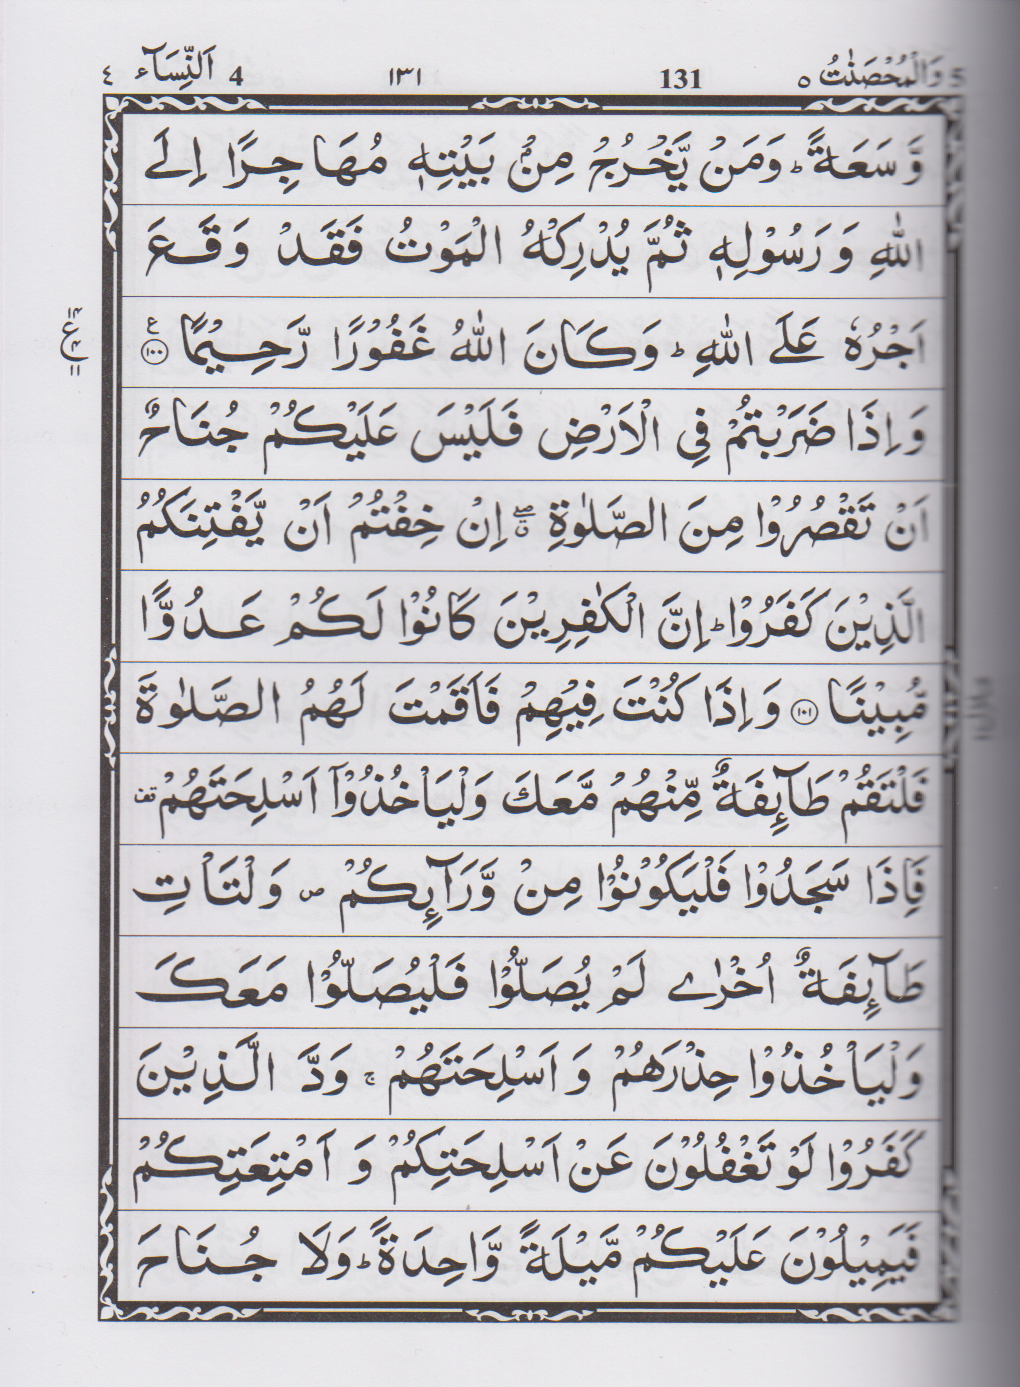 وَالْمُحْصَنٰتُ ٥ 131 ١٣١ 4 اَلنِّسَآء ٤
وَّسَعَةً ؕ وَمَنْ يَّخْرُجْ مِنْۢ بَيْتِهٖ مُهَاجِرًا اِلَى
اللّٰهِ وَرَسُوْلِهٖ ثُمَّ يُدْرِكْهُ الْمَوْتُ فَقَدْ وَقَعَ
اَجْرُهٗ عَلَى اللّٰهِ ؕ وَكَانَ اللّٰهُ غَفُوْرًا رَّحِيْمًا ۧ ١٠٠
وَاِذَا ضَرَبْتُمْ فِى الْاَرْضِ فَلَيْسَ عَلَيْكُمْ جُنَاحٌ
اَنْ تَقْصُرُوْا مِنَ الصَّلٰوةِ ۖۗ اِنْ خِفْتُمْ اَنْ يَّفْتِنَكُمُ
الَّذِيْنَ كَفَرُوْا ؕ اِنَّ الْكٰفِرِيْنَ كَانُوْا لَكُمْ عَدُوًّا
مُّبِيْنًا ١٠١ وَاِذَا كُنْتَ فِيْهِمْ فَاَقَمْتَ لَهُمُ الصَّلٰوةَ
فَلْتَقُمْ طَآئِفَةٌ مِّنْهُمْ مَّعَكَ وَلْيَاْخُذُوْۤا اَسْلِحَتَهُمْ قف
فَاِذَا سَجَدُوْا فَلْيَكُوْنُوْا مِنْ وَّرَآئِكُمْ ص وَلْتَاْتِ
طَآئِفَةٌ اُخْرٰى لَمْ يُصَلُّوْا فَلْيُصَلُّوْا مَعَكَ
وَلْيَاْخُذُوْا حِذْرَهُمْ وَاَسْلِحَتَهُمْ ۚ وَدَّ الَّذِيْنَ
كَفَرُوْا لَوْ تَغْفُلُوْنَ عَنْ اَسْلِحَتِكُمْ وَاَمْتِعَتِكُمْ
فَيَمِيْلُوْنَ عَلَيْكُمْ مَّيْلَةً وَّاحِدَةً ؕ وَلَا جُنَاحَ